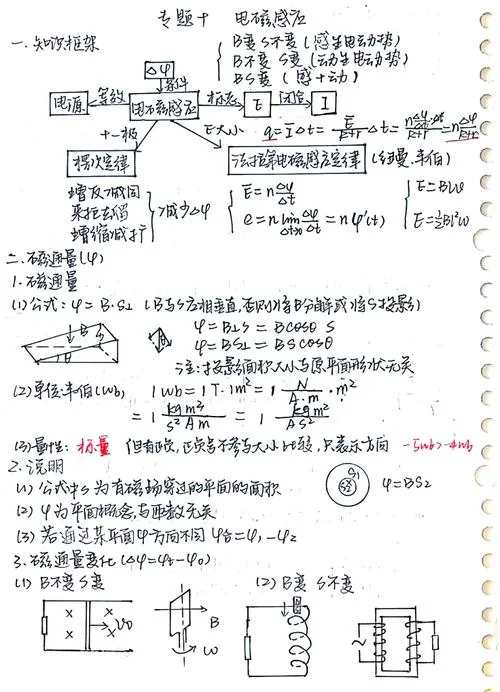 专题十 电磁感应
一.知识框架
B变 S不变 (感生电动势)
B不变 S变 (动生电动势)
BS变 (感+动)
Δφ
条件
电源 等效 电磁感应 标志 E 闭合 I
十-极 E大小 q=IΔt=E/(R+r)Δt=(nΔφ/Δt·Δt)/(R+r)=nΔφ/(R+r)
楞次定律 法拉第电磁感应定律 (纽曼.韦伯)
增反减同
来拒去留
增缩减扩
减少Δφ
E=nΔφ/Δt
e=n lim Δt→0 Δφ/Δt=nφ'(t)
E=Blv
E=½Bl²ω
二.磁通量(φ)
1.磁通量
(1)公式:φ=B·S⊥ (B与S应相垂直,否则将B分解或将S投影)
B S θ
φ=B⊥S=Bcosθ S
φ=BS⊥=BScosθ
注:投影面积大小与原平面形状无关
(2)单位:韦伯(wb) 1wb=1T·1m²=1 N/(A·m)·m²
=1 kg m³/(s² A m)=1 kg m²/(A S²)
(3)量性:标量 但有正负,正负号不参与大小比较,只表示方向 -5wb>-4wb
2.说明
(1)公式中S为有磁场穿过的平面的面积 S₁ S₂ φ=BS₂
(2)φ为平面概念,与匝数无关
(3)若通过某平面φ方向不同 φ合=φ₁-φ₂
3.磁通量变化(Δφ=φt-φ₀)
(1) B不变 S变 (2) B变 S不变
× × × × V₀ B ω ~